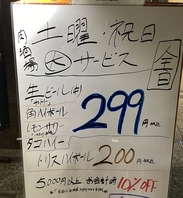 土曜・祝日
大サービス
生ビール(中)
角ハイボール
レモンサワー
タコハイ
299円
トリスハイボール 200円
5000円以上 お会計時 10%OFF